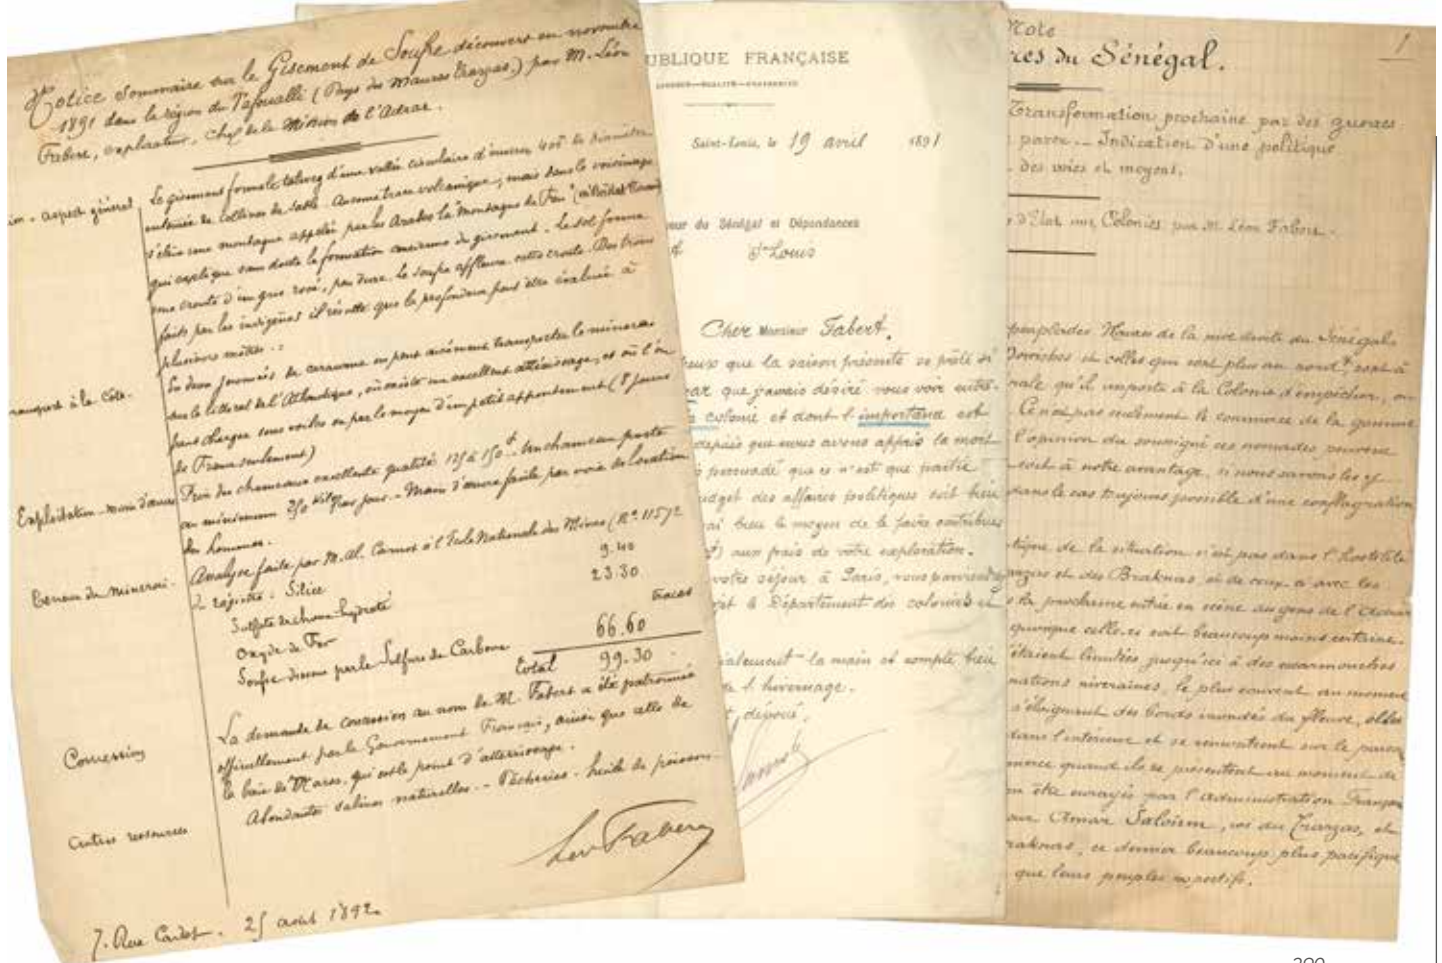 Notice Sommaire sur le Gisement de Soufre découvert en novembre
1891 dans la région du Tafouallé (Pays des Maures Trarzas) par M. Léon
Fabert, explorateur, chef de la Mission de l'Adrar.
aspect général
Le gisement forme le talweg d'une vallée circulaire d'environ 400 m de diamètre
entourée de collines de sable. Aucune trace volcanique, mais dans le voisinage
s'élève une montagne appelée par les Arabes la "montagne de Feu"
qui explique sans doute la formation ancienne du gisement. Le sol forme
une croute d'un gris rosé, peu dure. Le soufre affleure cette croute. Des trous
faits par les indigènes il résulte que la profondeur peut être évaluée à
plusieurs mètres.
à la Côte.
En deux journées de caravane on peut aisément transporter le minerai
sur le littoral de l'Atlantique, où existe un excellent atterrissage, et où l'on
peut charger sous voiles ou par le moyen d'un petit appontement (8 jours
de France seulement)
Exploitation - main d'œuvre
Prix des chameaux excellente qualité 125 à 150 f. Un chameau porte
au minimum 250 Kil par jour. - Main d'œuvre facile par voie de location
des hommes.
Teneur du minerai.
Analyse faite par M. Ad. Carnot à l'Ecole Nationale des Mines (No 11572
du registre. Silice 9.40
Sulfate de chaux hydraté 23.30
Oxyde de Fer traces
Soufre dissous par le Sulfure de Carbone 66.60
Total 99.30
Concession
La demande de concession au nom de M. Fabert a été patronnée
officiellement par le Gouvernement Français, ainsi que celle de
la baie de Maroz, qui est le point d'atterrissage.
Autres ressources
Abondantes salines naturelles. - Pêcheries - huile de poisson.
Léon Fabert
7. Rue Cadet. 25 août 1892.
UBLIQUE FRANÇAISE
LIBERTÉ—ÉGALITÉ—FRATERNITÉ
Saint-Louis, le 19 avril 1891
eur du Sénégal et Dépendances
St Louis
Cher Monsieur Fabert,
eux que la saison présente se prête si
rar que j'avais désiré vous voir entre-
colonie et dont l'importance est
depuis que nous avons appris la mort
persuadé que ce n'est que partie
udget des affaires politiques soit bien
ai bien le moyen de le faire contribuer
aux frais de votre exploration.
votre séjour à Paris, vous pourriez
jet le Département des colonies et
ialement la main et compte bien
de l'hivernage.
t dévoué.
Note
1
res du Sénégal.
Transformation prochaine par des guerres
paren - Indication d'une politique
des voies et moyens.
d'Etat aux Colonies par M. Léon Fabert.
peuplades Maures de la rive droite du Sénégal
Dowiches et celles qui sont plus au nord, sont à
rale qu'il importe à la Colonie d'empêcher, ou
Ce n'est pas seulement le commerce de la gomme
l'opinion du soussigné ces nomades peuvent
soit à notre avantage, si nous savons les y
dans le cas toujours possible d'une conflagration
tique de la situation n'est pas dans l'hostilité
arzas et des Braknas, ni de ceux-ci avec les
la prochaine entrée en scène des gens de l'Adrar
quoique celle-ci soit beaucoup moins certaine.
étaient limitées jusqu'ici à des escarmouches
nations riveraines, le plus souvent au moment
s'éloignent des bords inondés du fleuve, elles
dans l'intérieur et se rencontrent sur le parcou
merce quand ils se présentent au moment de
être enrayés par l'administration França
our Amar Saloum, roi du Trarzas, et
raknas, ce dernier beaucoup plus pacifique
que leurs peuples respectifs.